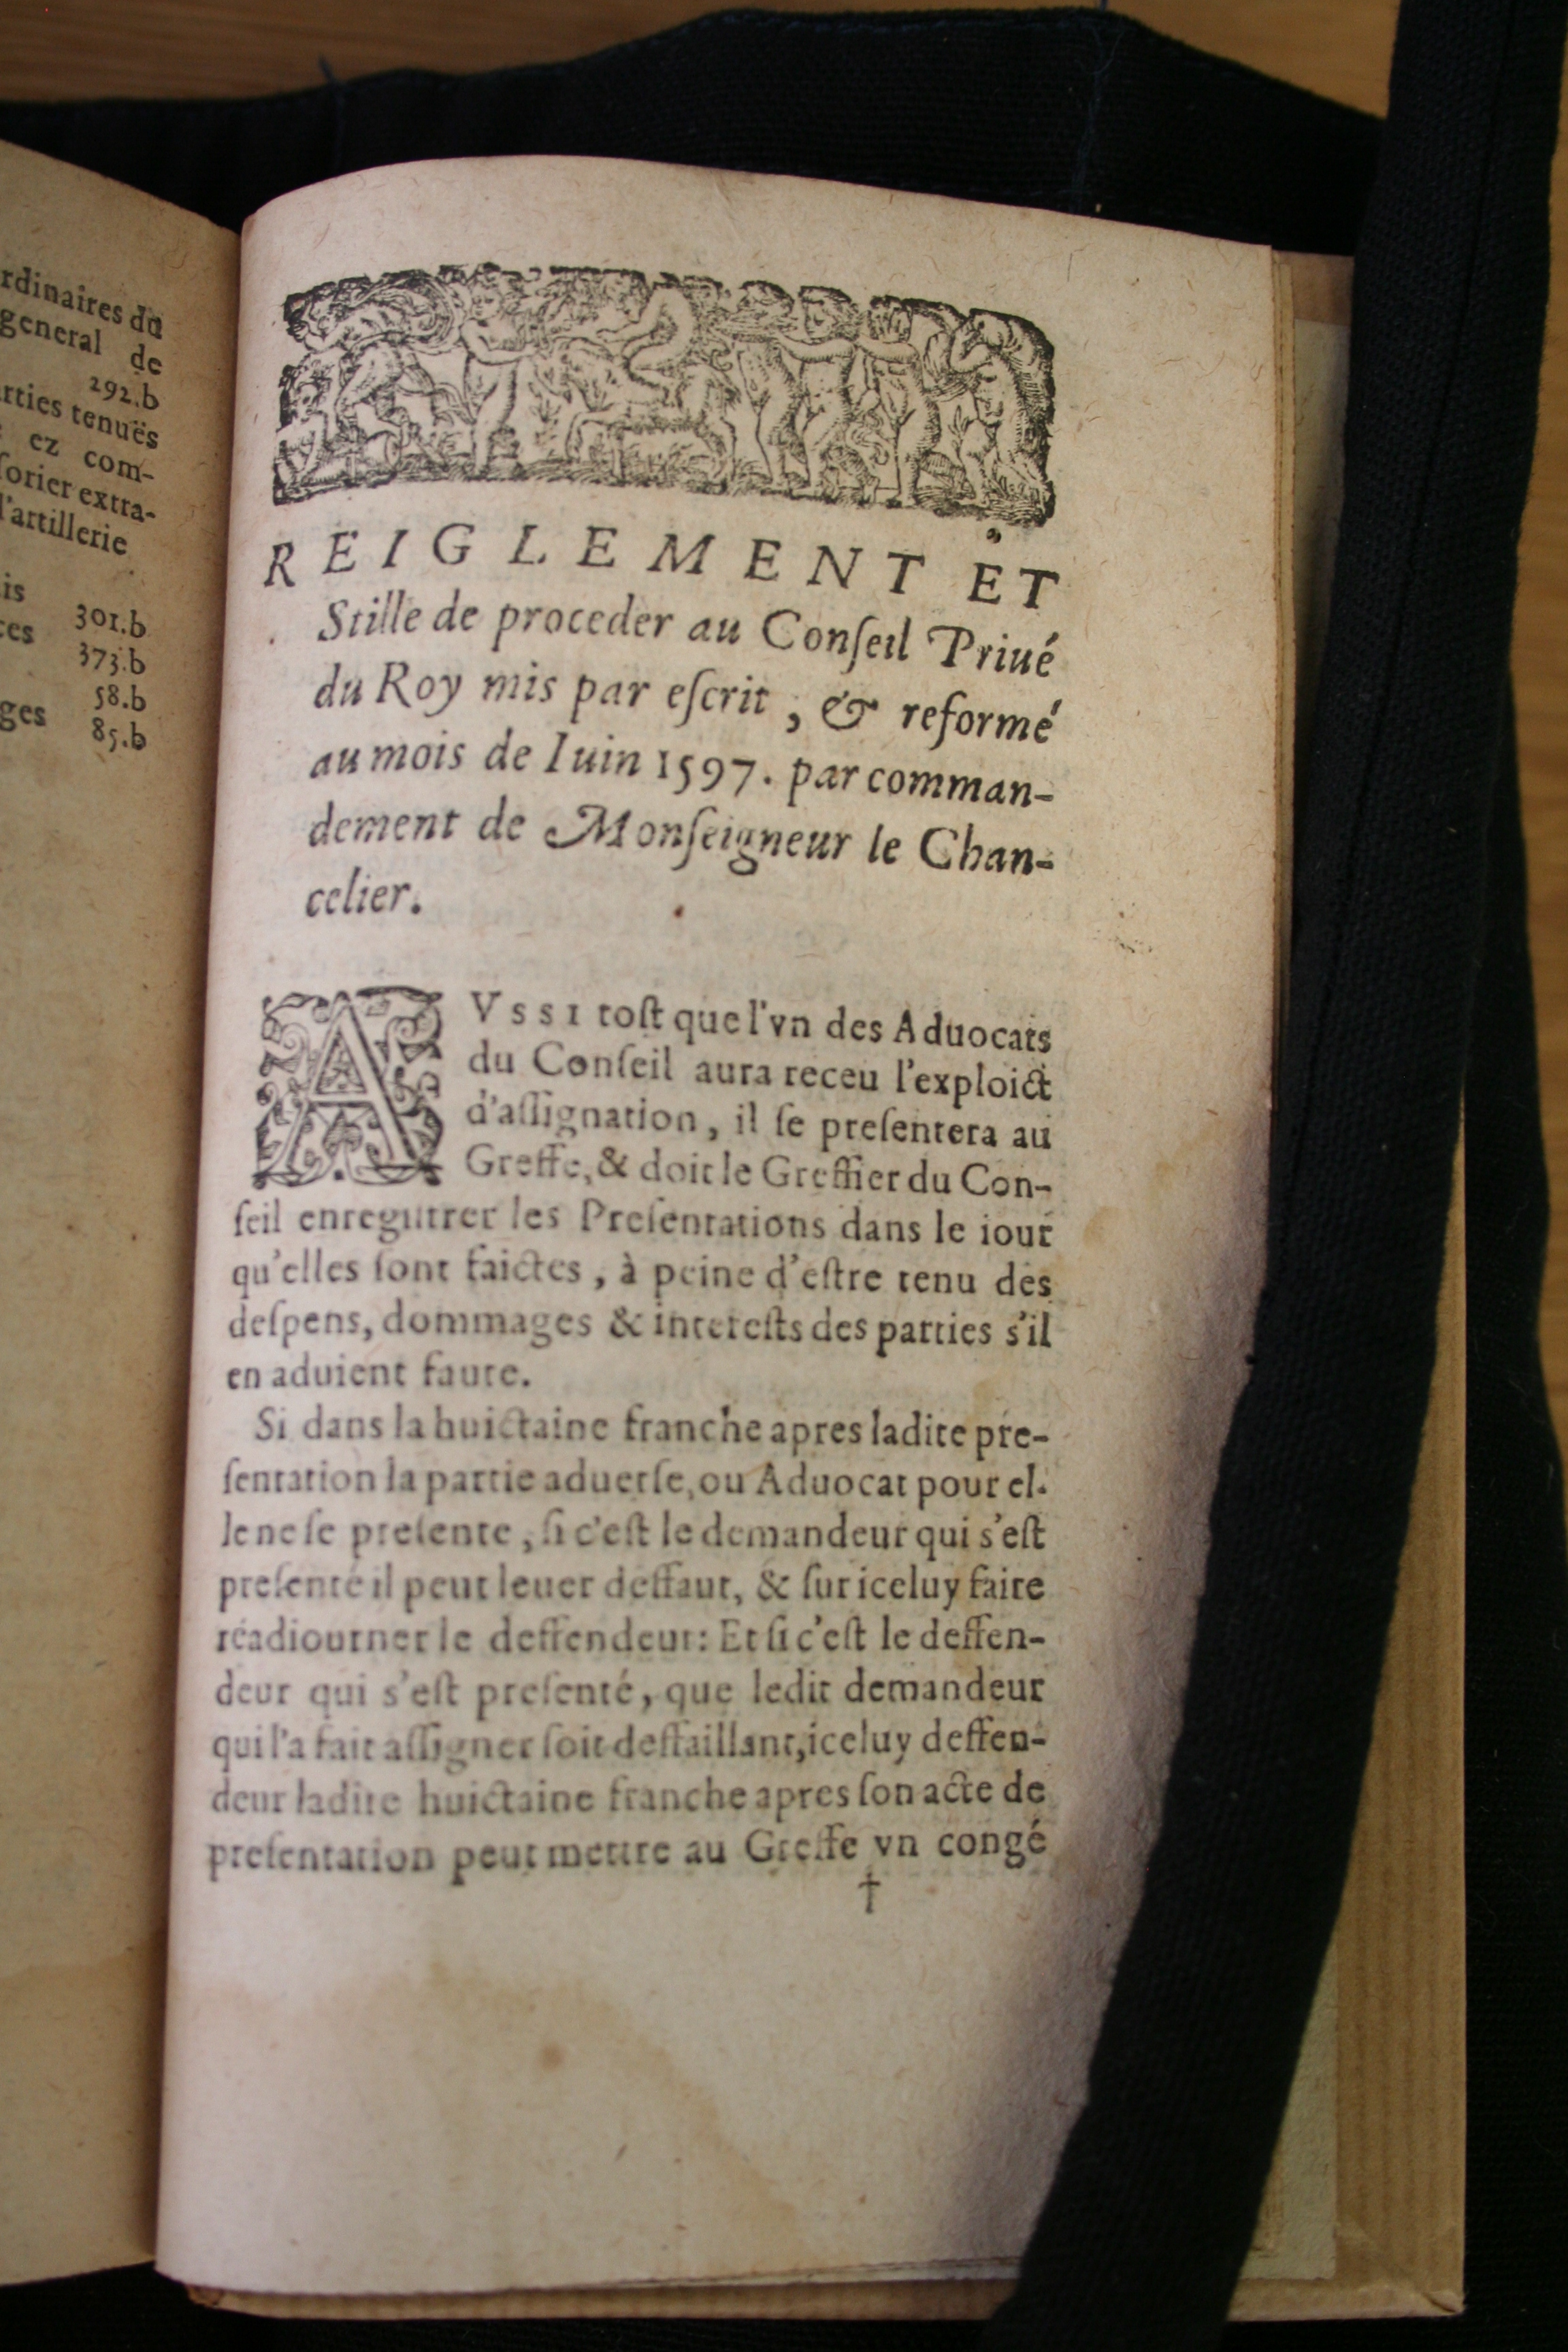 rdinaires du
general de
292.b
rties tenuës
ez com-
sorier extra-
l'artillerie
is
301.b
ces 373.b
58.b
ges 85.b
REIGLEMENT ET
Stille de proceder au Conſeil Priué
du Roy mis par eſcrit, & reformé
au mois de Iuin 1597. par comman-
dement de Monſeigneur le Chan-
celier.
AVSSI toſt que l'vn des Aduocats
du Conſeil aura receu l'exploict
d'aſſignation, il ſe preſentera au
Greffe, & doit le Greffier du Con-
ſeil enregiſtrer les Preſentations dans le iour
qu'elles ſont faictes, à peine d'eſtre tenu des
deſpens, dommages & intereſts des parties s'il
en aduient faute.
Si dans la huictaine franche apres ladite pre-
ſentation la partie aduerſe, ou Aduocat pour el-
le ne ſe preſente, ſi c'eſt le demandeur qui s'eſt
preſenté il peut leuer deffaut, & ſur iceluy faire
réadiourner le deffendeur: Et ſi c'eſt le deffen-
deur qui s'eſt preſenté, que ledit demandeur
qui l'a fait aſſigner ſoit deffaillant, iceluy deffen-
deur ladite huictaine franche apres ſon acte de
preſentation peut mettre au Greffe vn congé
†